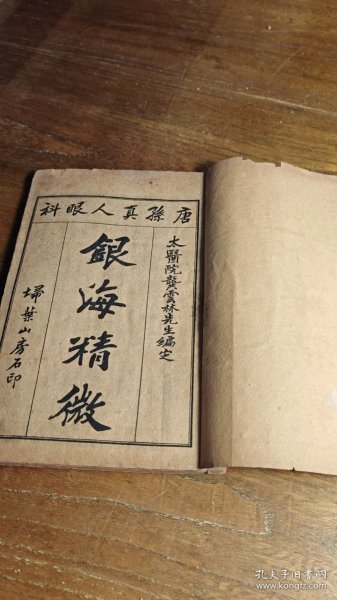 唐孫真人眼科
太醫院龔雲林先生編定
銀海精微
埽葉山房石印
孔夫子旧书网
www.kongfz.com